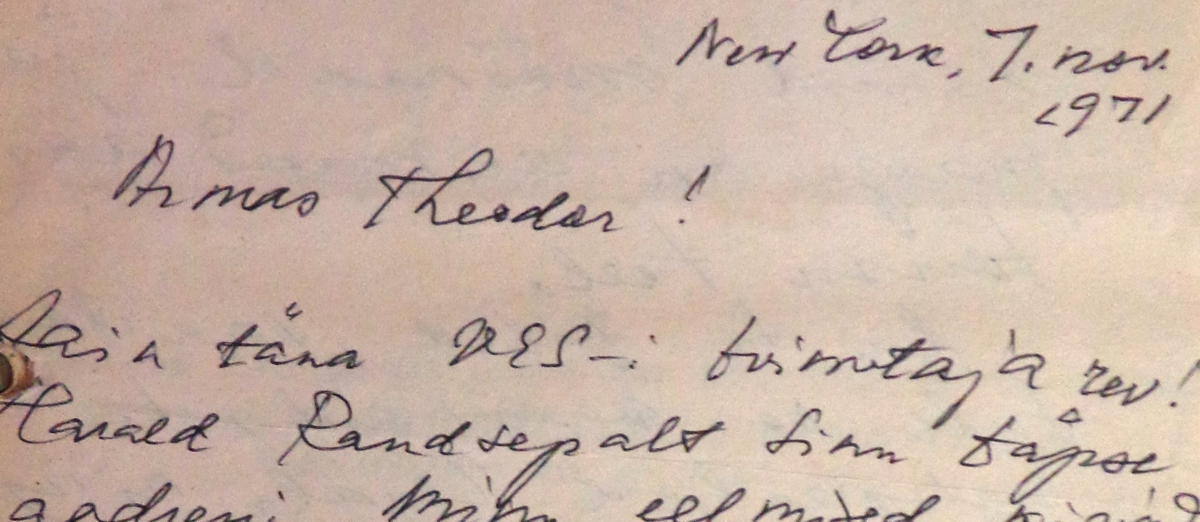 New York, 7. nov.
1971
Armas Theodor!
Sain täna VES-i toimetaja rev.
Harald Randsepalt Sinu täpse
aadressi. Minu eelmised kirjad